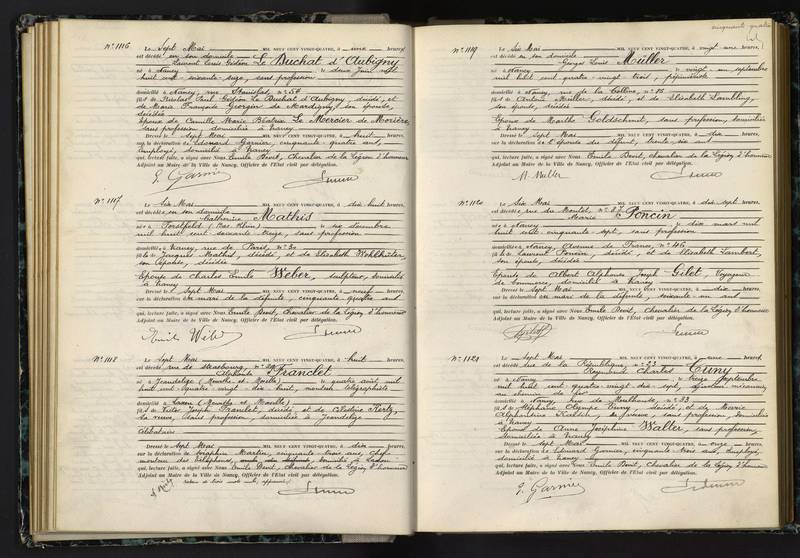 N° 1116
Le Sept Mai MIL NEUF CENT VINGT-QUATRE, à onze heures
est décédé en son domicile
Laurent Louis Gédéon Le Buchat d'Aubigny
né à Nancy le deux Juin mil
huit cent soixante-seize, sans profession
domicilié à Nancy, rue Stanislas, n° 54
fils de Nicolas Paul Gédéon Le Buchat d'Aubigny, décédé, et
de Marie Françoise Georgin de Mardigny, son épouse,
décédée
Epoux de Camille Marie Béatrix Le Mercier de Morière,
sans profession domiciliée à Nancy
Dressé le Sept Mai MIL NEUF CENT VINGT-QUATRE, à huit heures,
sur la déclaration de Edouard Garnier, cinquante-quatre ans,
employé, domicilié à Nancy
qui, lecture faite, a signé avec Nous Emile Bovit, Chevalier de la Légion d'honneur
Adjoint au Maire de la Ville de Nancy, Officier de l'Etat civil par délégation.
E. Garnier
N° 1117
Le Six Mai MIL NEUF CENT VINGT-QUATRE, à dix huit heures,
est décédée en son domicile
Catherine Mathis
née à (Bas-Rhin) le six décembre
mil huit cent soixante treize, sans profession
domiciliée à Nancy, rue de Paris, n° 30
fille de Jacques Mathis, décédé, et de Elisabeth
son épouse, décédée
Epouse de Charles Emile Weber, sculpteur, domicilié
à Nancy
Dressé le Sept Mai MIL NEUF CENT VINGT-QUATRE, à neuf heures,
sur la déclaration du mari de la défunte, cinquante-quatre ans
qui, lecture faite, a signé avec Nous Emile Bovit, Chevalier de la Légion d'honneur
Adjoint au Maire de la Ville de Nancy, Officier de l'Etat civil par délégation.
N° 1118
Le Sept Mai MIL NEUF CENT VINGT-QUATRE, à huit heures,
est décédé rue de Strasbourg,
Franclet
né à Jeandelize (Meurthe et Moselle) le quatre août mil
huit cent quatre vingt dix huit, monteur télégraphiste
domicilié à Laxou (Meurthe et Moselle)
fils de Victor Joseph Franclet, décédé et de Célestine
sa veuve, sans profession, domiciliée à Jeandelize
Célibataire
Dressé le Sept Mai MIL NEUF CENT VINGT-QUATRE, à dix heures,
sur la déclaration de Séraphin Martin, cinquante trois ans, Chef
monteur des Téléphones, domicilié à Laxou
qui, lecture faite, a signé avec Nous Emile Bovit, Chevalier de la Légion d'honneur
Adjoint au Maire de la Ville de Nancy, Officier de l'Etat civil par délégation.
cinquante quatre
N° 1119
Le Six Mai MIL NEUF CENT VINGT-QUATRE, à vingt une heures,
est décédé en son domicile
Georges Louis Müller
né à Nancy le vingt un septembre
mil huit cent quatre vingt trois, pépiniériste
domicilié à Nancy, rue de la Colline, n°
fils de Antoine Müller, décédé, et de Elisabeth Lambling,
son épouse, décédée
Epoux de Marthe Goldschmit, sans profession, domiciliée
à Nancy
Dressé le Sept Mai MIL NEUF CENT VINGT-QUATRE, à dix heures,
sur la déclaration de l'épouse du défunt, trente six ans
qui, lecture faite, a signé avec Nous Emile Bovit, Chevalier de la Légion d'honneur
Adjoint au Maire de la Ville de Nancy, Officier de l'Etat civil par délégation.
M. Muller
N° 1120
Le Six Mai MIL NEUF CENT VINGT-QUATRE, à dix sept heures,
est décédée rue du Montet, n° 87
Marie Poncin
née à Nancy le dix mars mil
huit cent cinquante-sept, sans profession
domiciliée à Nancy, Avenue de France, n° 46
fille de Laurent Poncin, décédé, et de Elisabeth Lambert,
son épouse, décédée
Epouse de Albert Alphonse Joseph Gilet, Voyageur
de Commerce, domicilié à Nancy
Dressé le Sept Mai MIL NEUF CENT VINGT-QUATRE, à dix heures,
sur la déclaration du mari de la défunte, soixante-un ans
qui, lecture faite, a signé avec Nous Emile Bovit, Chevalier de la Légion d'honneur
Adjoint au Maire de la Ville de Nancy, Officier de l'Etat civil par délégation.
N° 1121
Le Sept Mai MIL NEUF CENT VINGT-QUATRE, à une heures,
est décédé rue de la République, n° 53
Raymond Charles Cuny
né à Nancy le treize Septembre
mil huit cent quatre-vingt-dix-sept, ajusteur mécanicien
au chemin de fer
domicilié à Nancy, rue de Mulhouse, n° 33
fils de Stéphane Olympe Cuny décédé, et de Marie
Alphonsine, sa veuve, sans profession, domiciliée
à Nancy
Epoux de Anne Joséphine Waller, sans profession,
domiciliée à Nancy
Dressé le Sept Mai MIL NEUF CENT VINGT-QUATRE, à onze heures,
sur la déclaration de Edouard Garnier, cinquante trois ans, employé,
domicilié à Nancy
qui, lecture faite, a signé avec Nous Emile Bovit, Chevalier de la Légion d'honneur
Adjoint au Maire de la Ville de Nancy, Officier de l'Etat civil par délégation.
E. Garnier